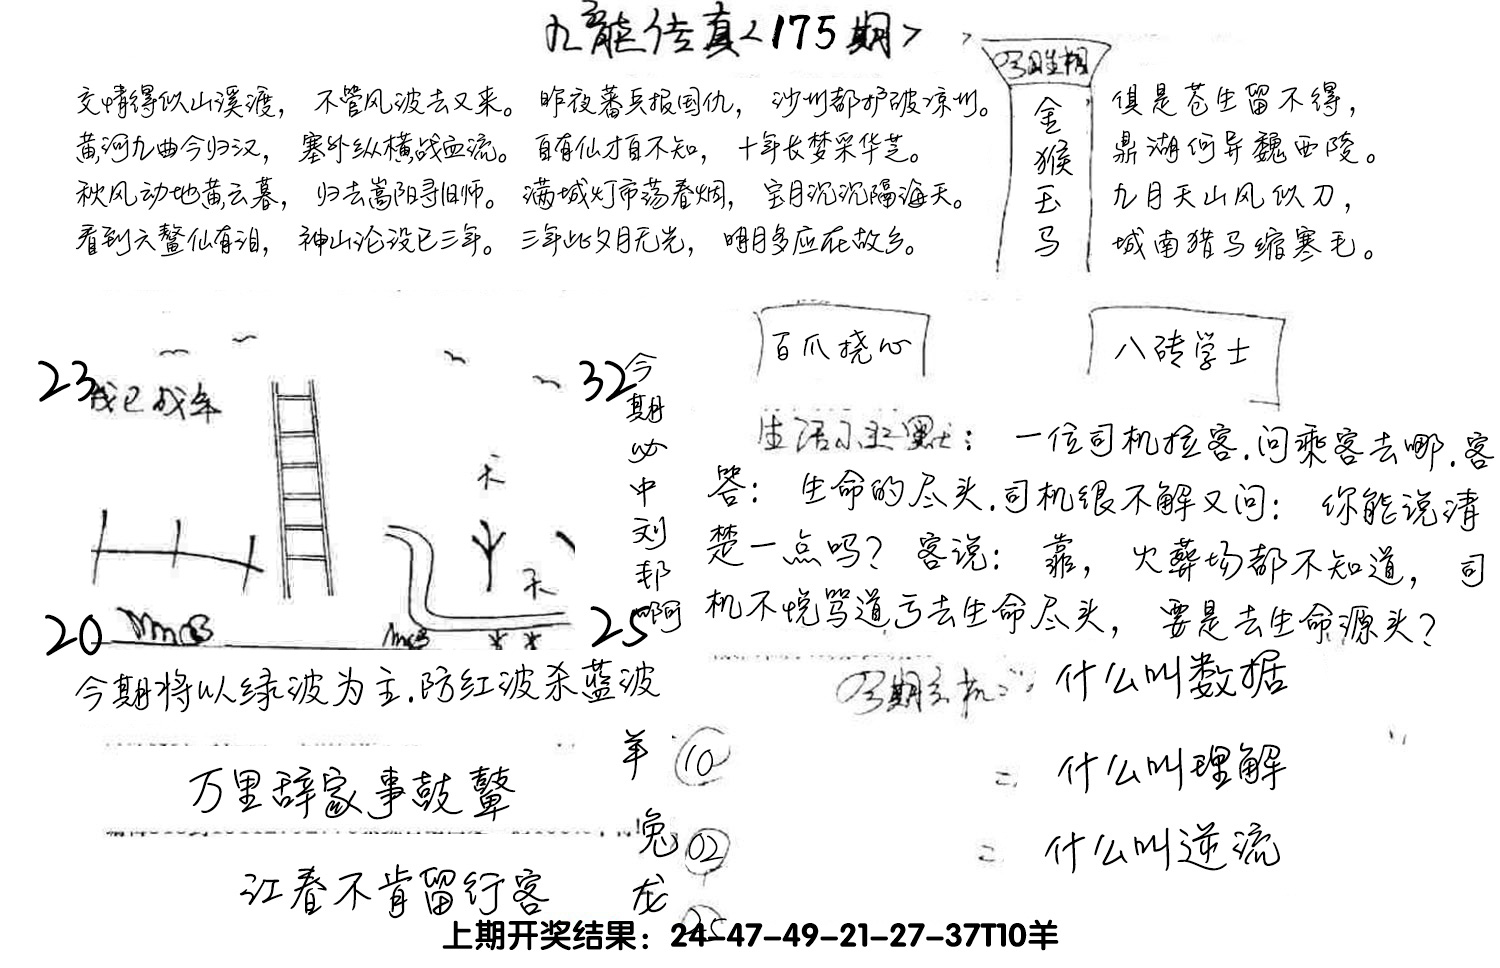 九龙传真<175期>
今期生相
金猴玉马
交情得似山溪渡，不管风波去又来。昨夜蕃兵报国仇，沙州都护破凉州。
黄河九曲今归汉，塞外纵横战血流。自有仙才自不知，十年长梦采华芝。
秋风动地黄云暮，归去嵩阳寻旧师。满城灯市荡春烟，宝月沉沉隔海天。
看到六鳌仙有泪，神山沦没已三年。三年此夕月无光，明月多应在故乡。
俱是苍生留不得，
鼎湖何异魏西陵。
九月天山风似刀，
城南猎马缩寒毛。
23
32
20
25
天
天
今期必中刘邦啊
百爪挠心
八砖学士
生活小幽默：一位司机拉客.问乘客去哪.客
答：生命的尽头.司机很不解又问：你能说清
楚一点吗？客说：靠，火葬场都不知道，司
机不悦骂道亏去生命尽头，要是去生命源头？
今期将以绿波为主.防红波杀蓝波
今期玄机：什么叫数据
=什么叫理解
=什么叫逆流
万里辞家事鼓鼙
江春不肯留行客
羊 10
兔 02
龙 25
上期开奖结果：24-47-49-21-27-37T10羊